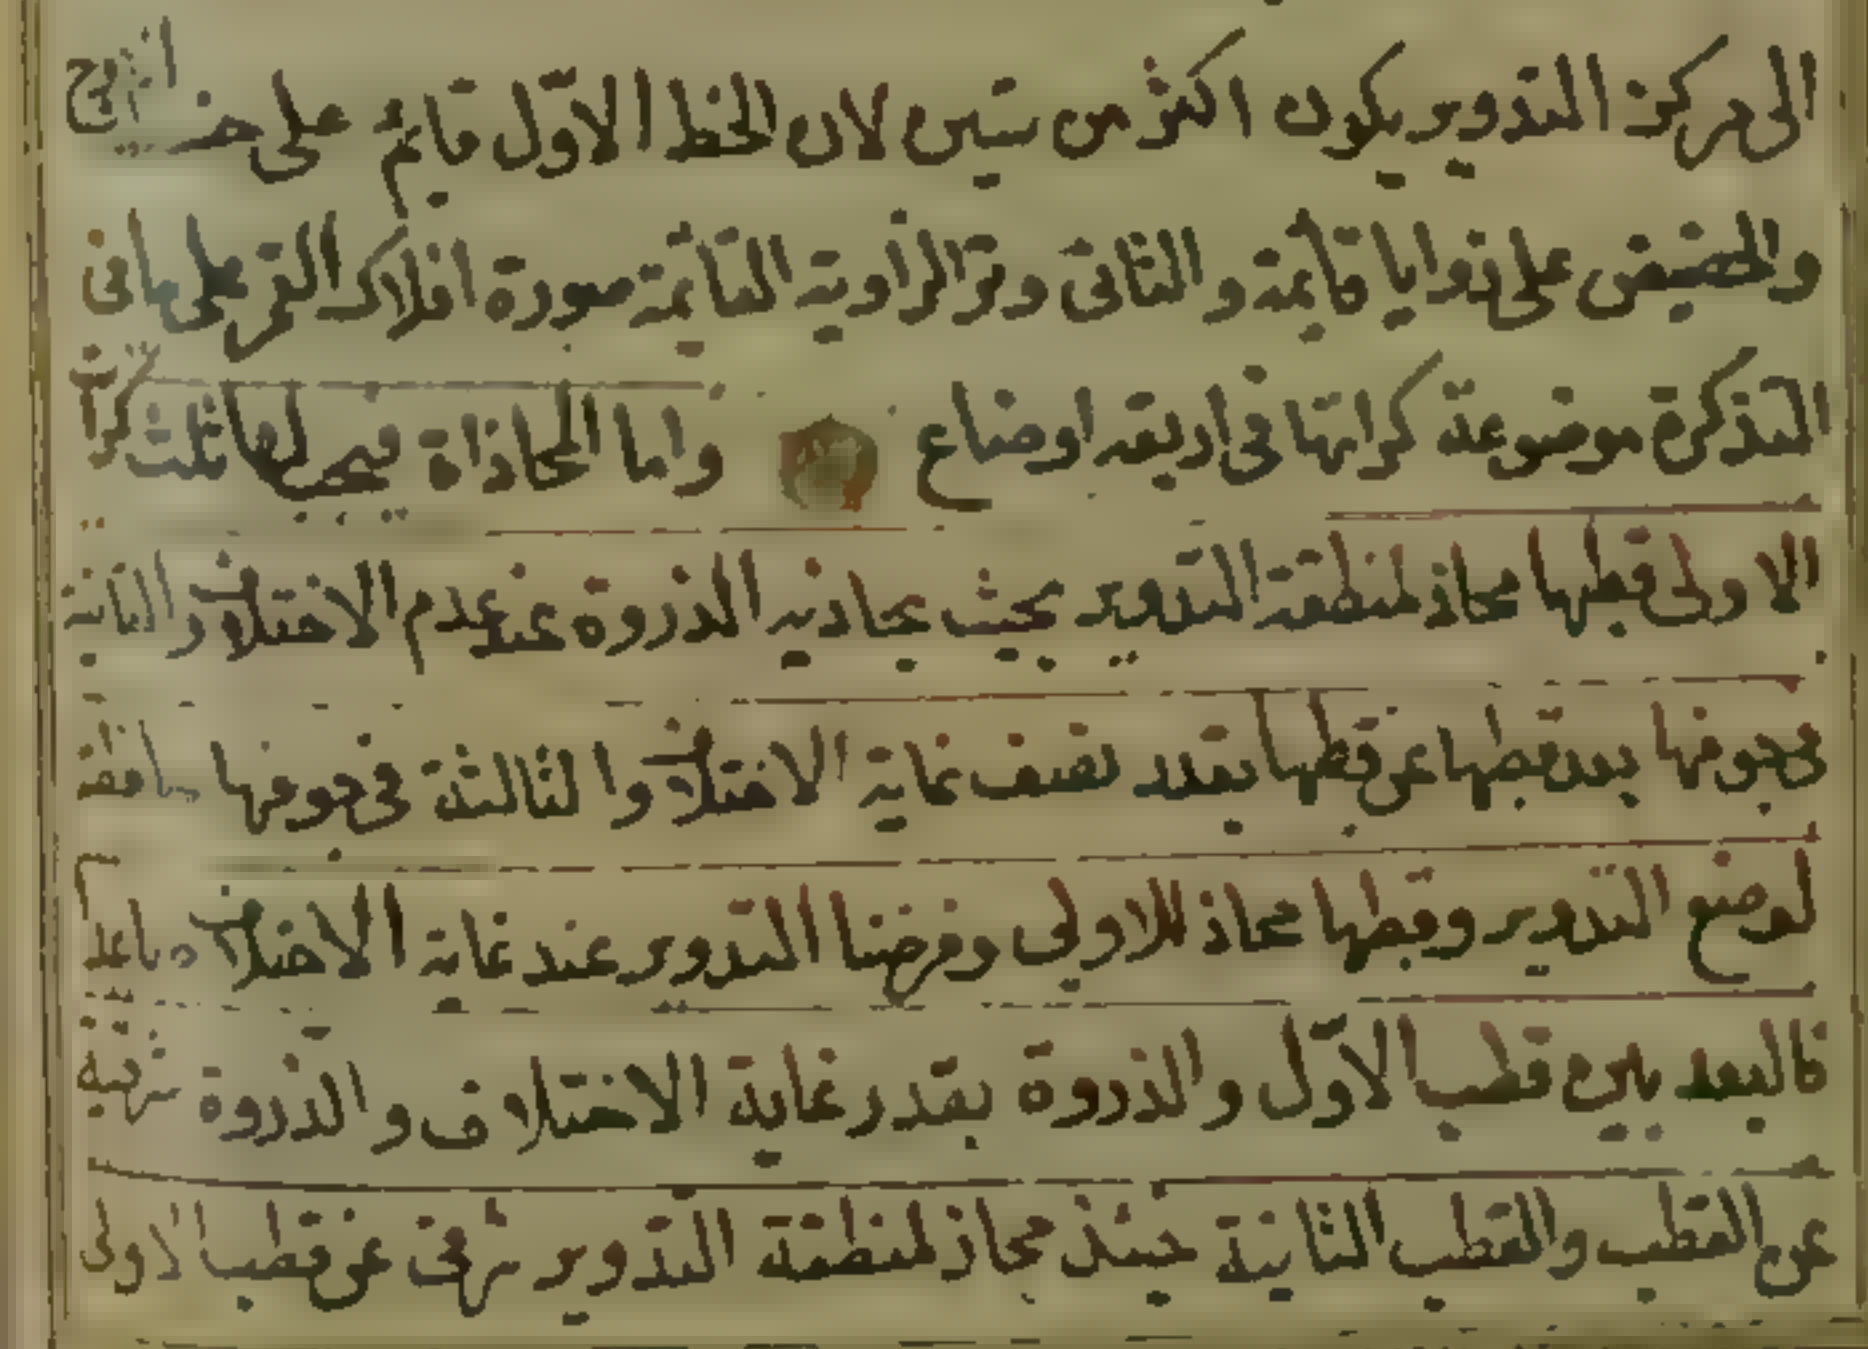 الى مركز التدوير يكون اكثر من ستين لان الخط الاول قايم على خط الاوج
والحضيض على زوايا قايمة والثانى وتر الزاوية القائمة صورة افلاك القمر على ما فى
التذكرة موضوعة كراتها فى اربعه اوضاع واما المحاذاة فيجب لها ثلث كرات
الاولى قطبها محاذ لمنطقة التدوير بحيث يحاذيه الذروة عند عدم الاختلاف والثانية
فى جوفها بعد قطبها عن قطبها بقدر نصف غاية الاختلاف والثالثة فى جوفها حافظة
لوضع التدوير وقطبها محاذ للاولى وفرضنا التدوير عند غاية الاختلاف
فالبعد بين قطب الاول والذروة بقدر غاية الاختلاف والذروة شرقية
عن القطب والقطب الثانية حينئذ محاذ لمنطقة التدوير شرقى عن قطب الاولى